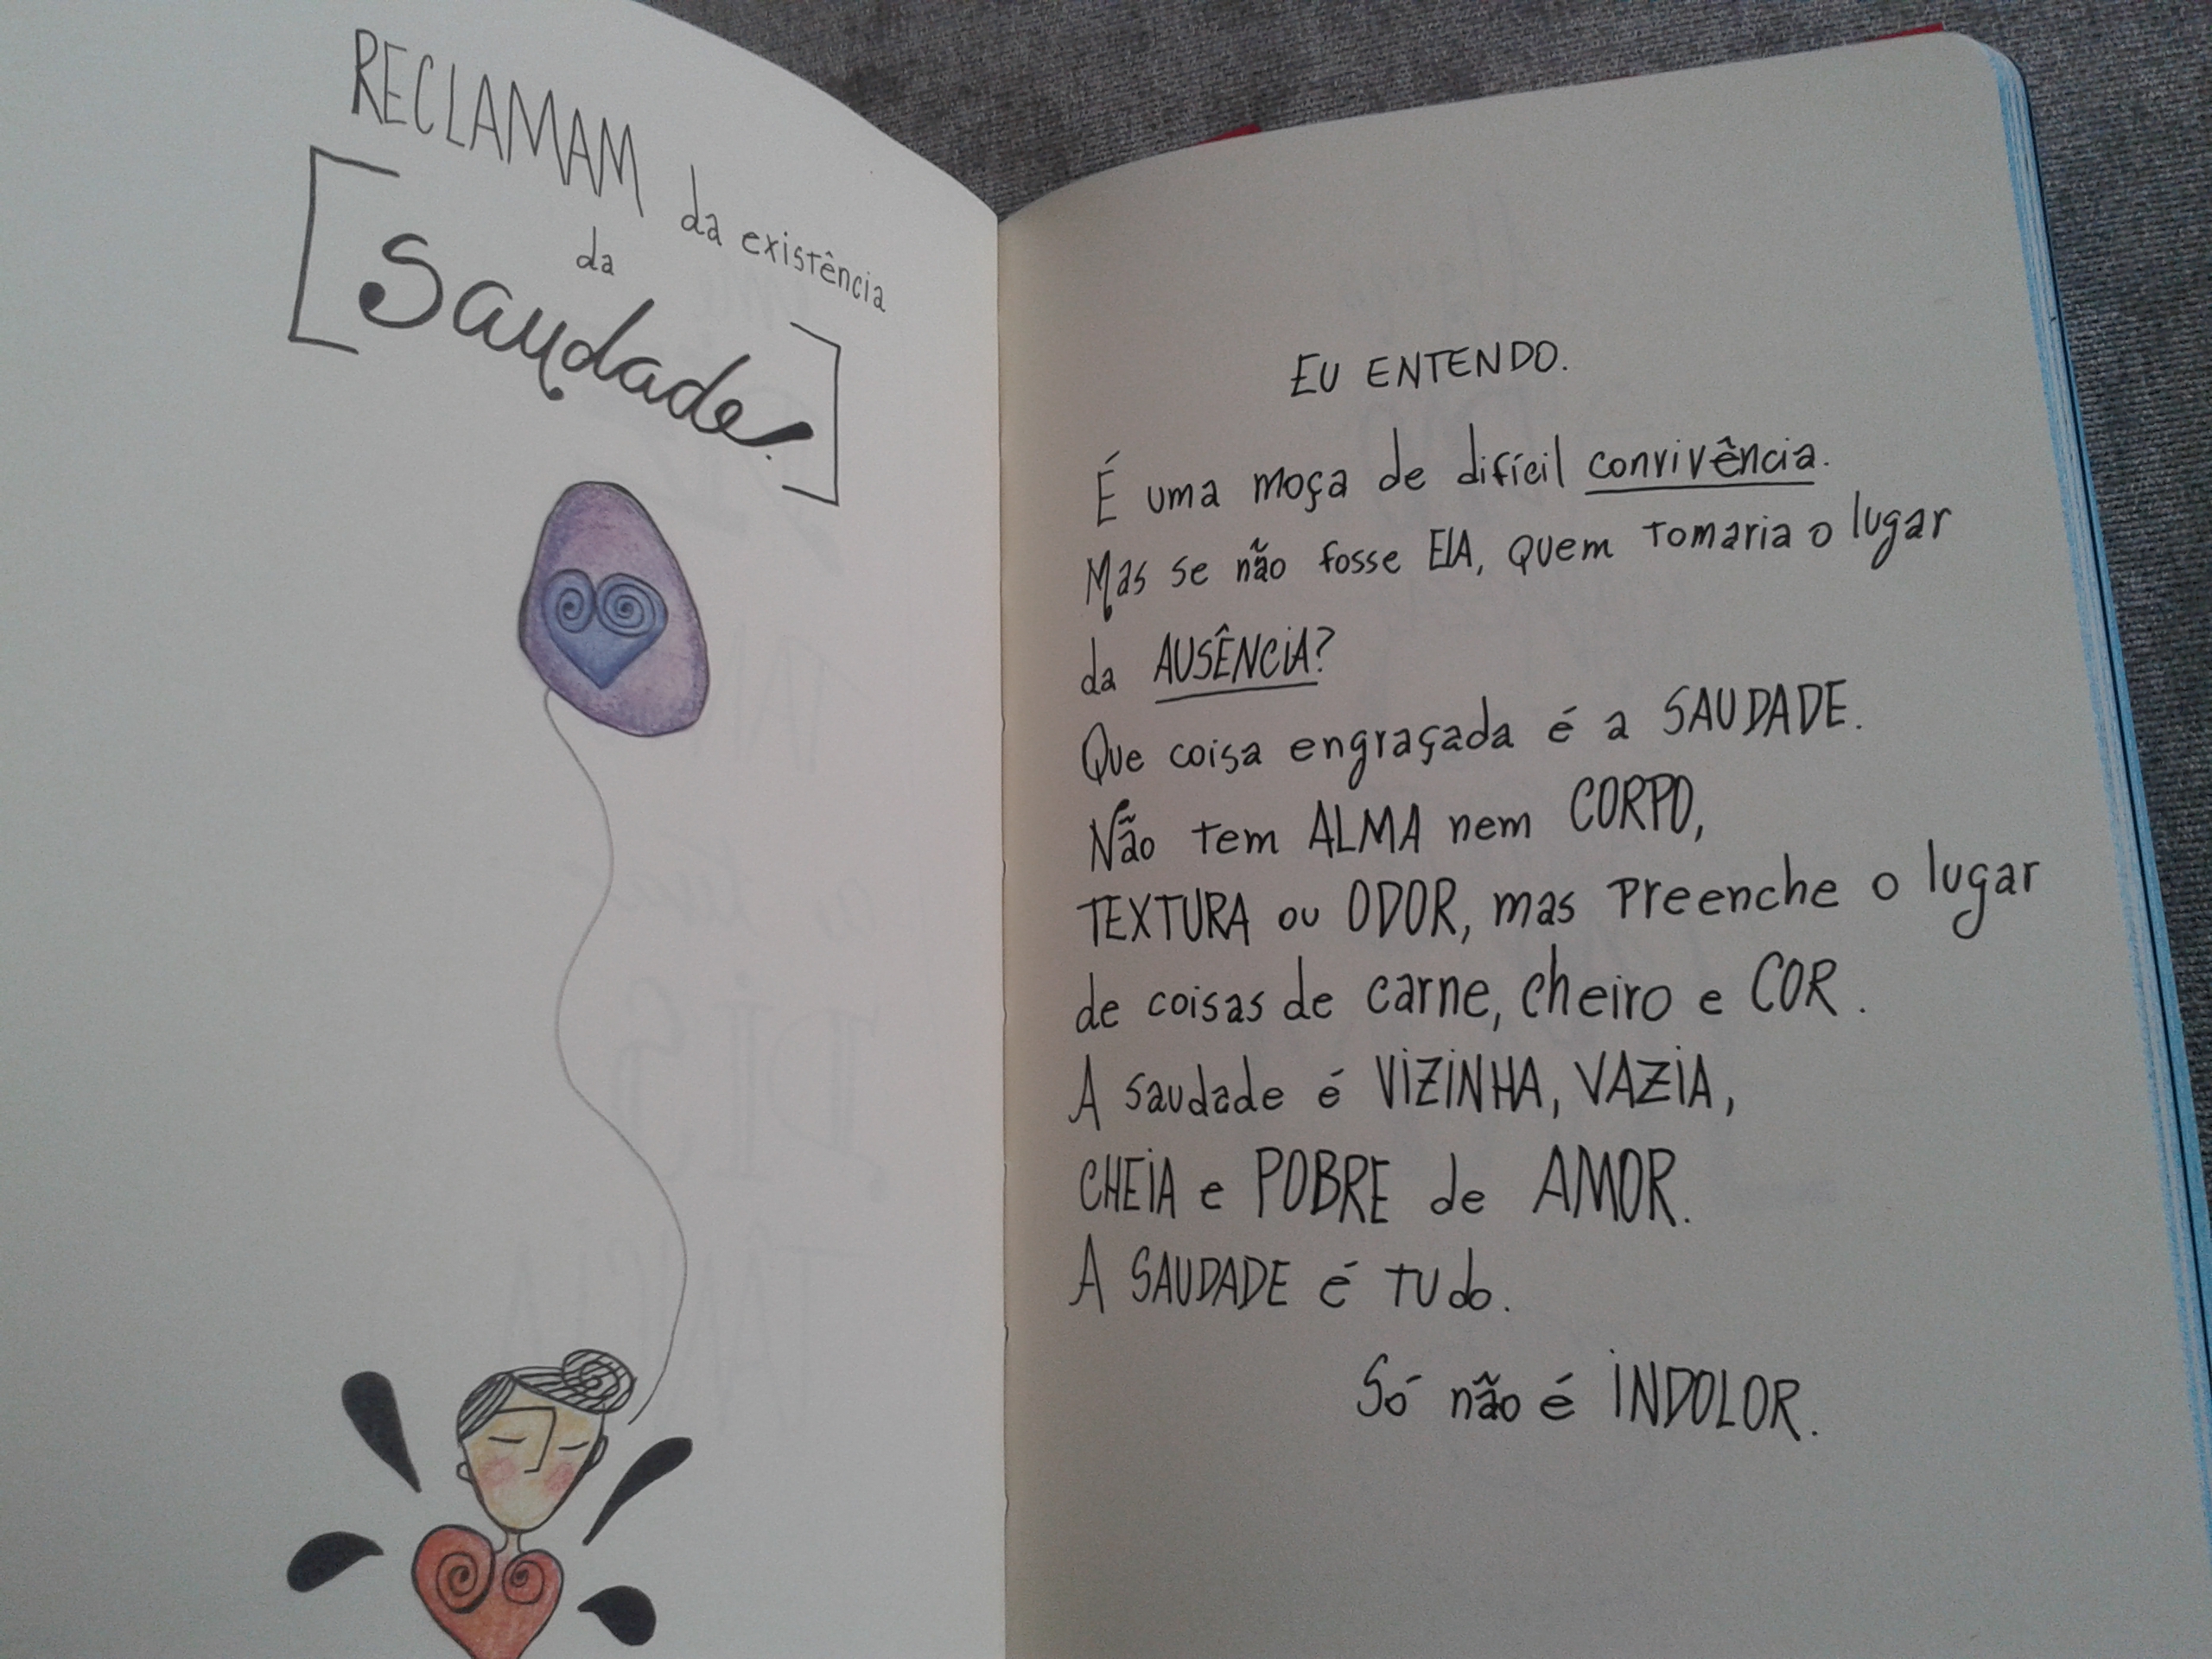 RECLAMAM da existência
da
[Saudade!]
EU ENTENDO.
É uma moça de difícil convivência.
Mas se não fosse ElA, quem tomaria o lugar
da AUSÊNCiA?
Que coisa engraçada é a SAUDADE.
Não tem ALMA nem CORPO,
TEXTURA ou ODOR, mas preenche o lugar
de coisas de carne, cheiro e COR.
A saudade é ViZiNHA, VAZiA,
CHEiA e POBRE de AMOR.
A SAUDADE é TUdo.
Só não é iNDOLOR.